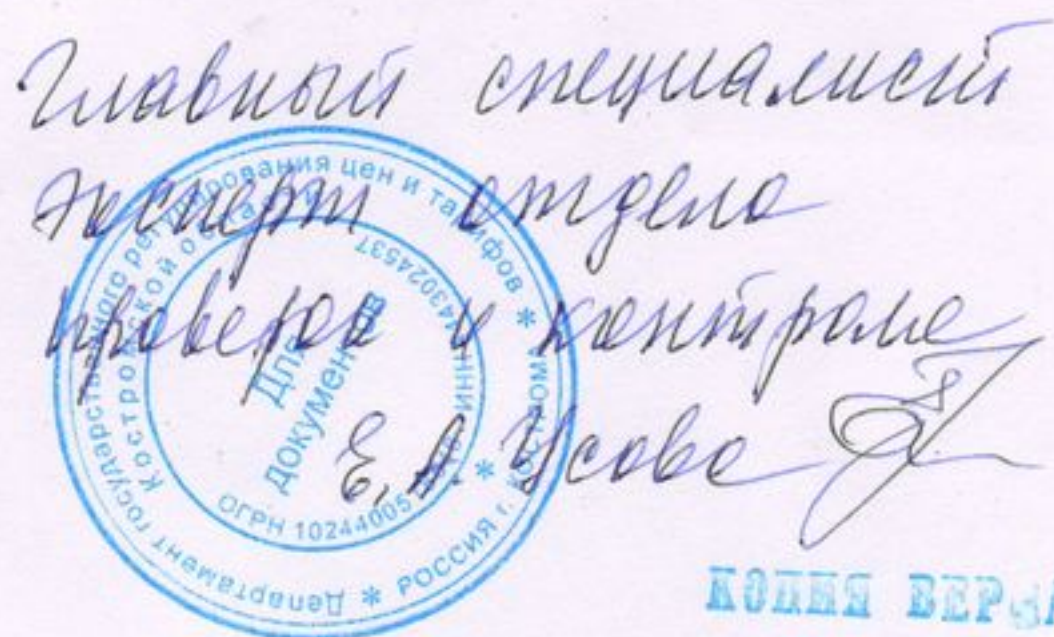 Главный специалист
эксперт отдела
проверок и контроля
Е.А. Усова
Департамент государственного регулирования цен и тарифов *
Костромской области
* РОССИЯ г. КОСТРОМА *
ОГРН 10244005
ИНН 4443024537
Для
документов
КОПИЯ ВЕР